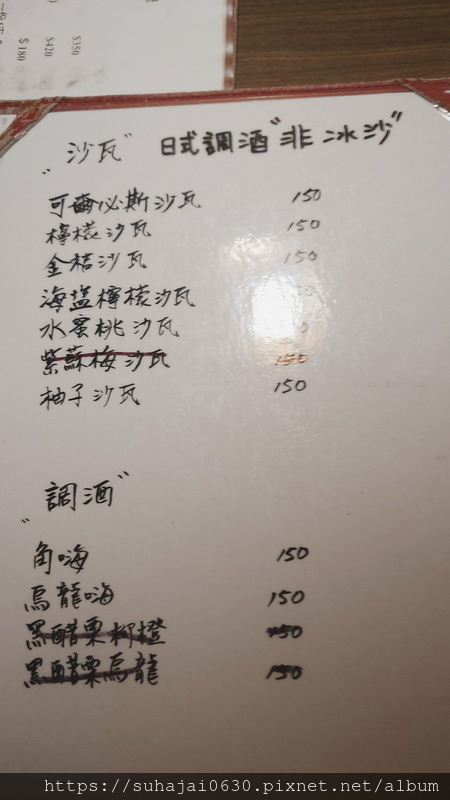 $350
$420
$180
"沙瓦" 日式調酒"非冰沙"
可爾必斯沙瓦 150
檸檬沙瓦 150
金桔沙瓦 150
海塩檸檬沙瓦
水蜜桃沙瓦 0
紫蘇梅沙瓦 150
柚子沙瓦 150
"調酒"
角嗨 150
烏龍嗨 150
黑醋栗柳橙 150
黑醋栗烏龍 150
https://suhajai0630.pixnet.net/album